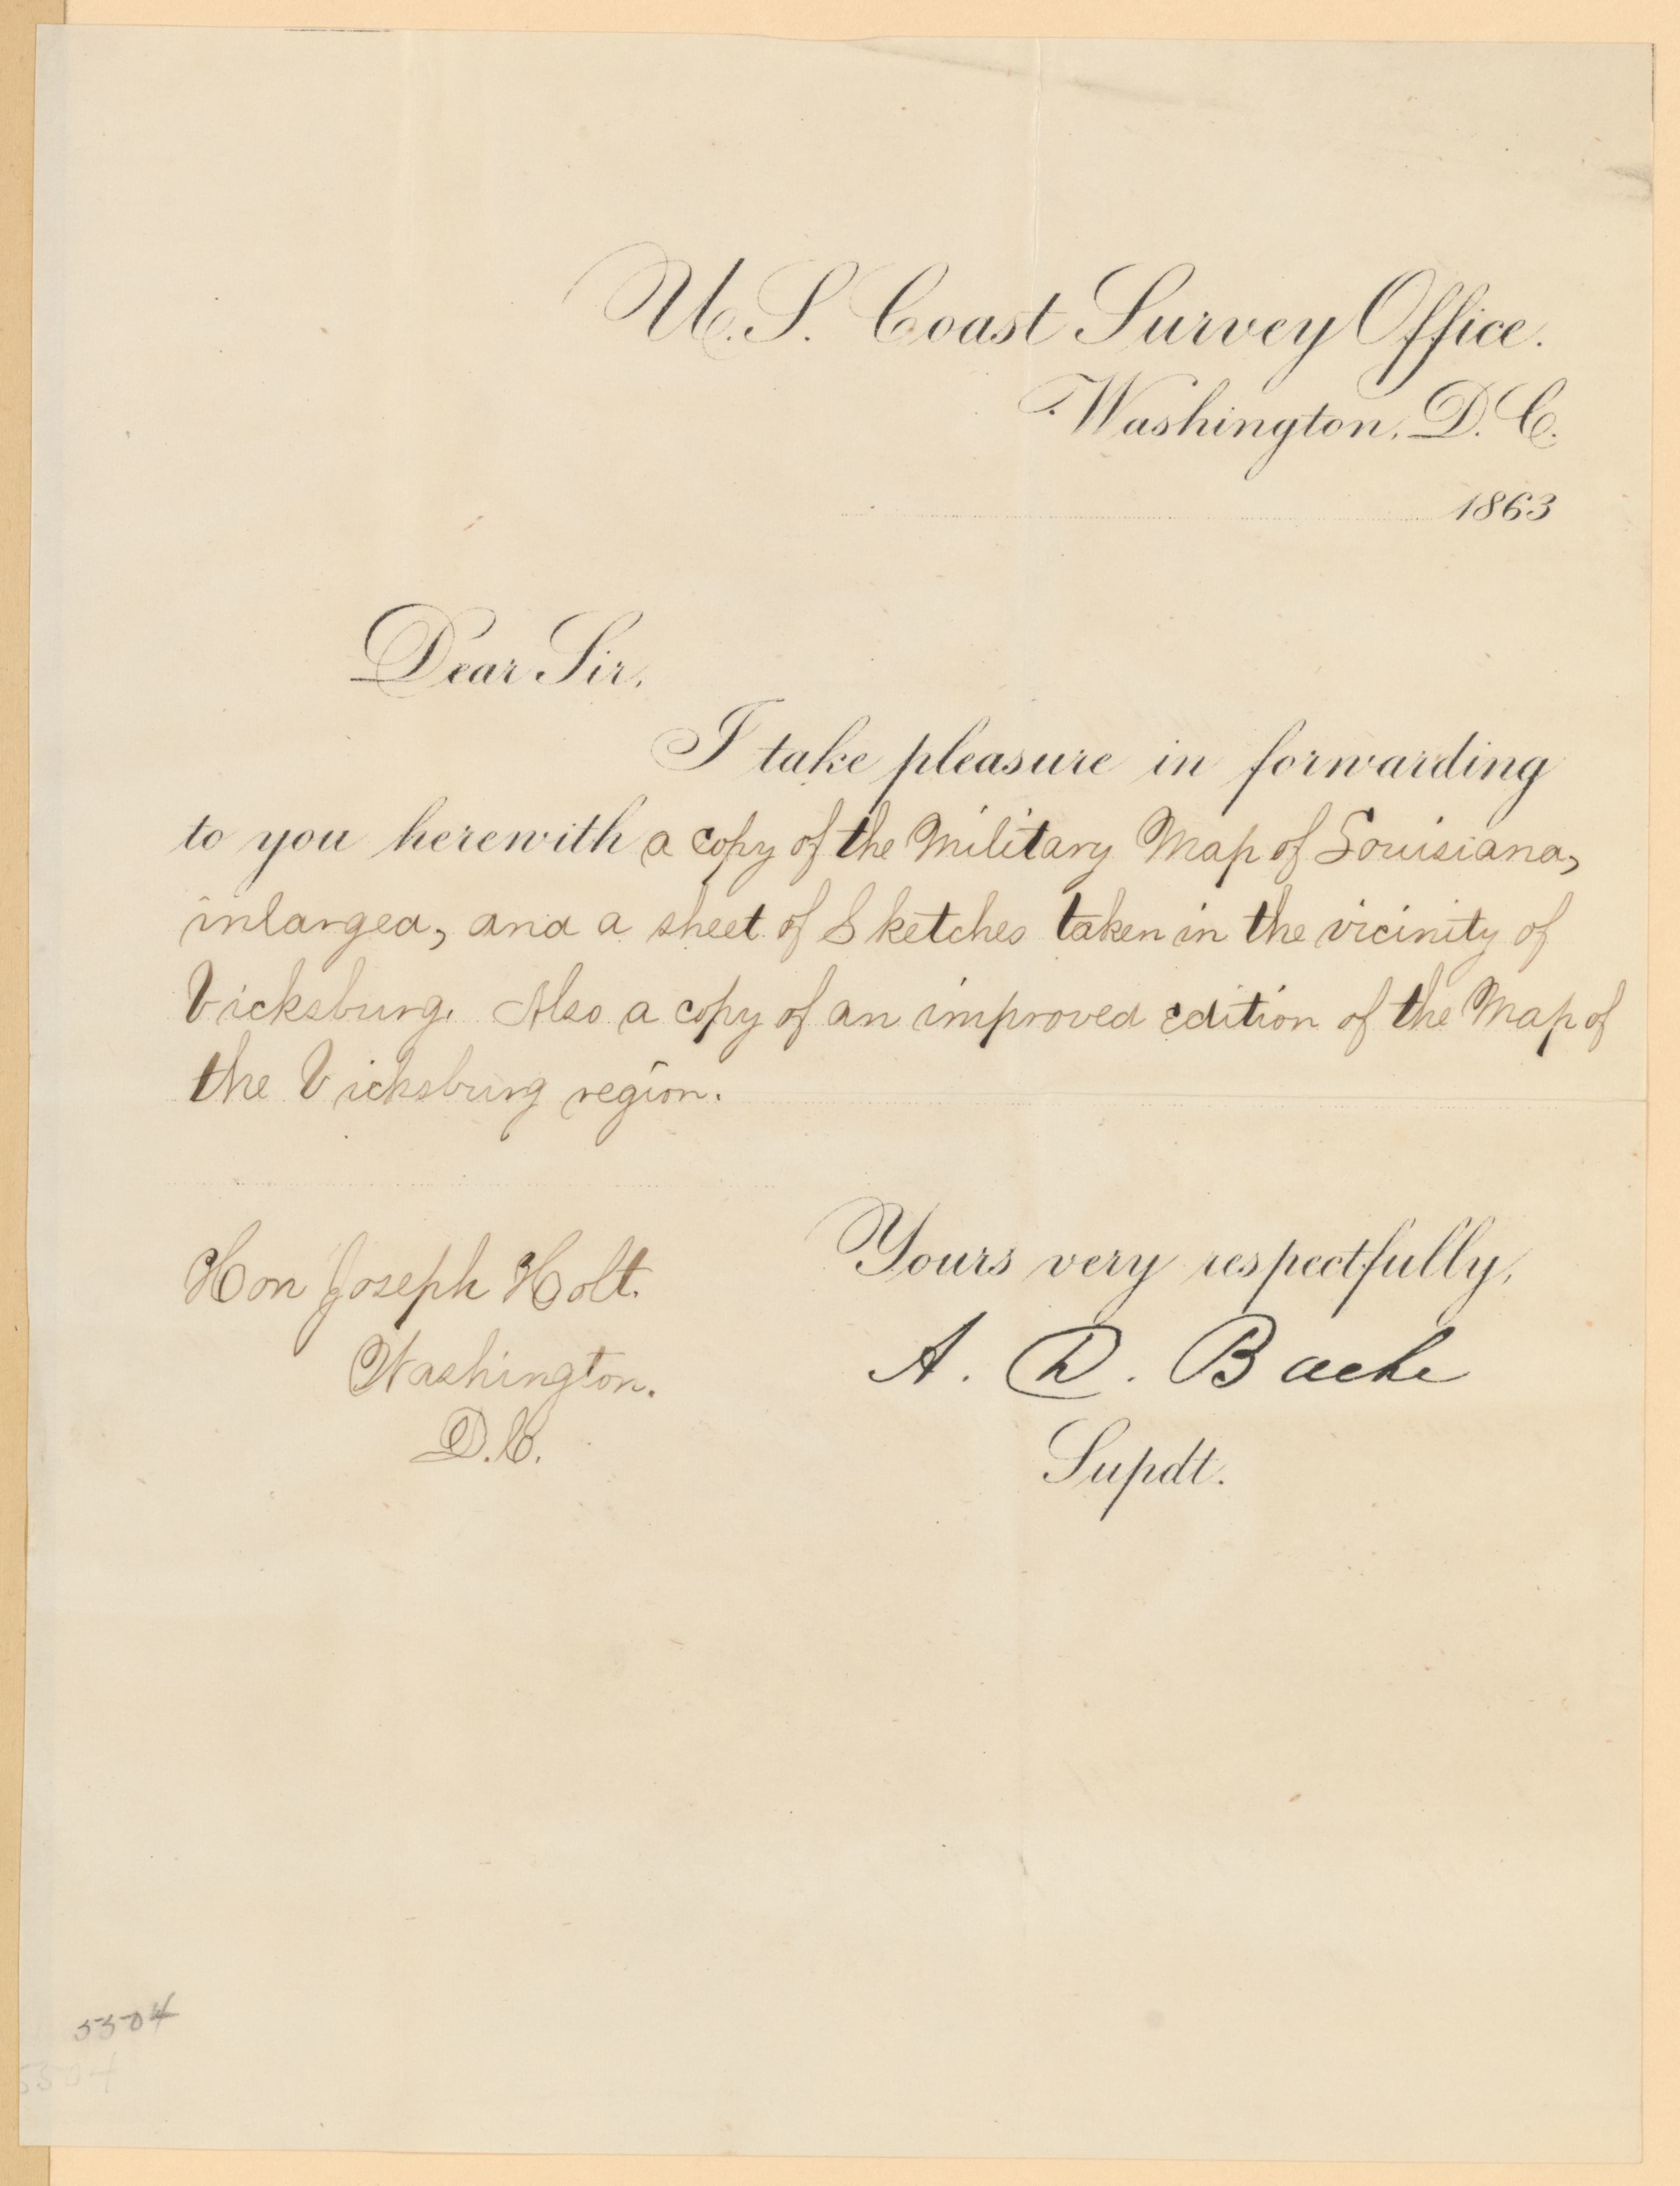 U.S. Coast Survey Office.
Washington, D.C.
1863
Dear Sir,
I take pleasure in forwarding
to you herewith a copy of the Military Map of Louisiana,
inlarged, and a sheet of Sketches taken in the vicinity of
Vicksburg. Also a copy of an improved edition of the Map of
the Vicksburg region.
Yours very respectfully,
A. D. Bache
Supdt.
Hon Joseph Holt.
Washington.
D.C.
5504
5504